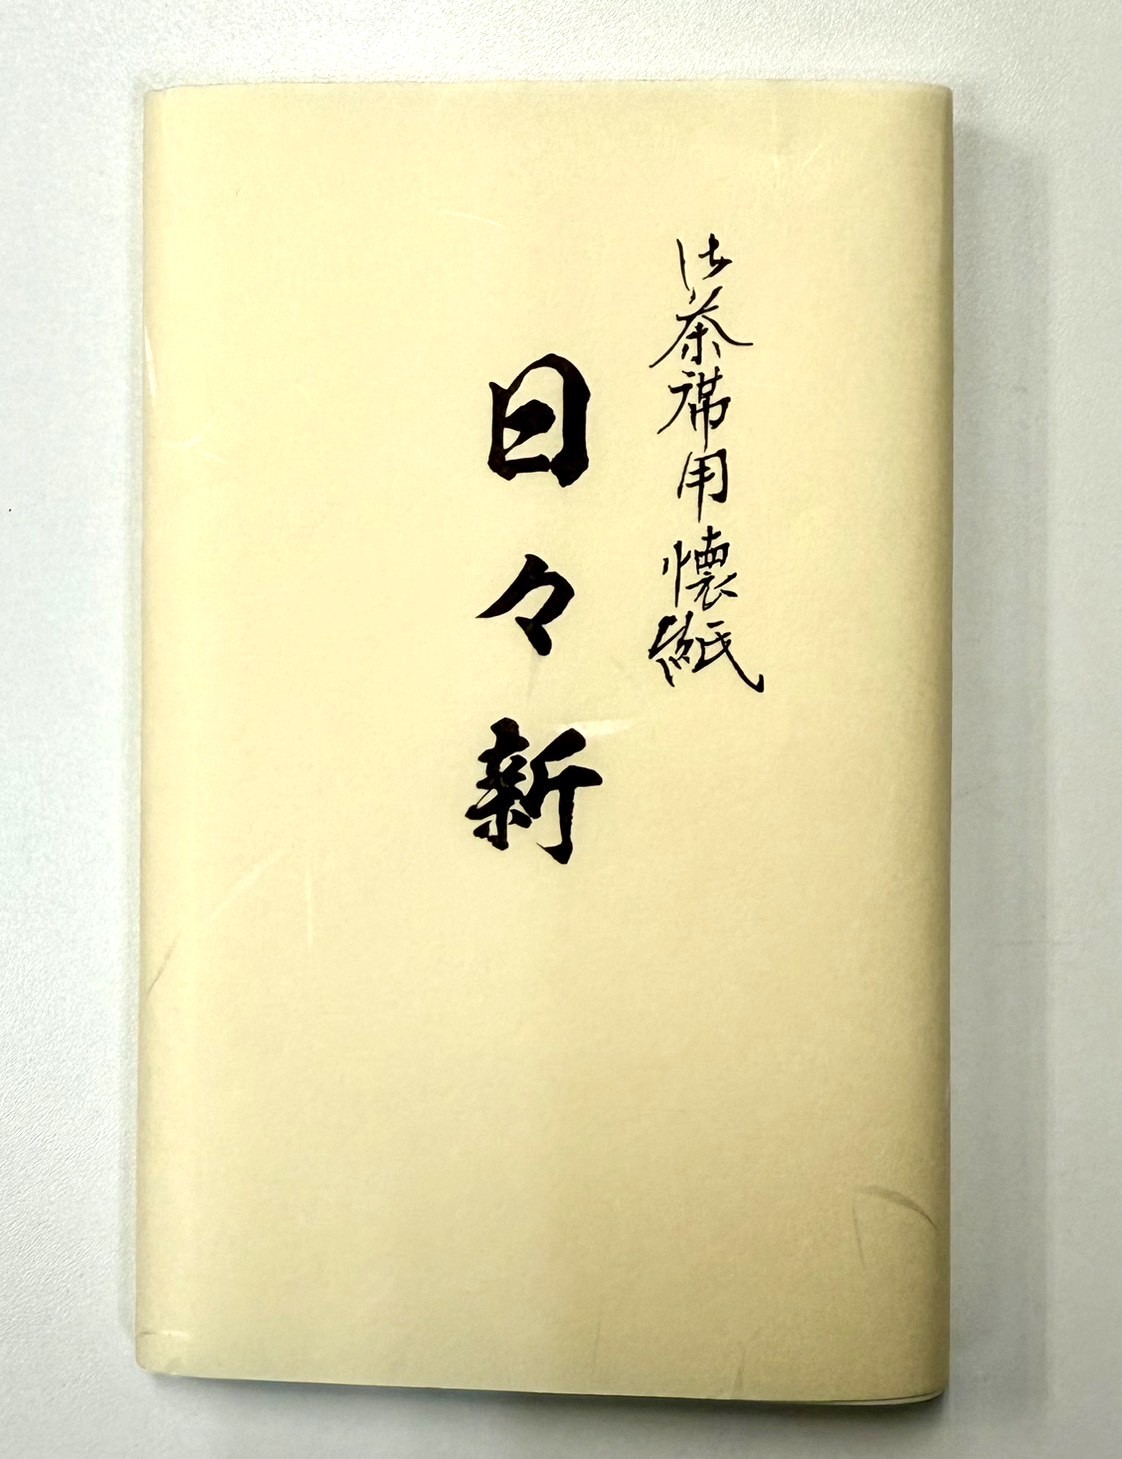 御茶席用懐紙
日々新